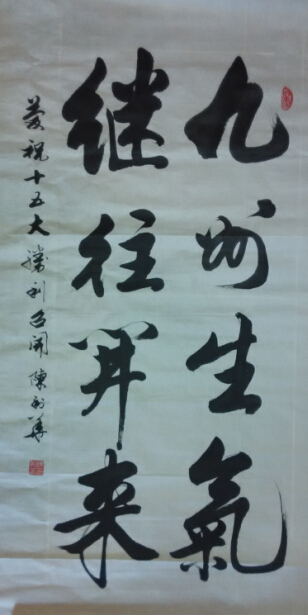 九州生氣
继往開来
慶祝十五大勝利召開 陳 華